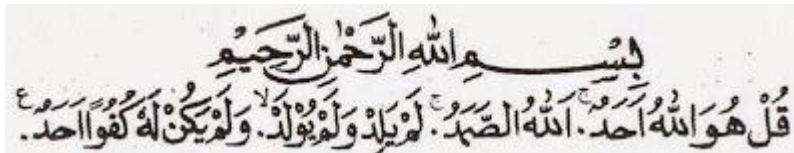 بِسْــــمِ اللهِ الرَّحْمٰنِ الرَّحِيْمِ
قُلْ هُوَ اللهُ اَحَدٌۚ. اَللهُ الصَّمَدُۚ. لَمْ يَلِدْ وَلَمْ يُوْلَدْۙ. وَلَمْ يَكُنْ لَّهٗ كُفُوًا اَحَدٌࣖ.